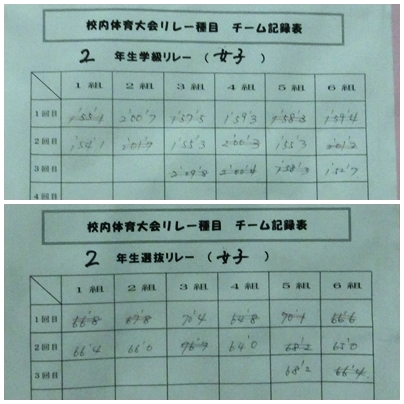 校内体育大会リレー種目 チーム記録表
2 年生学級リレー (女子)
1組 2組 3組 4組 5組 6組
1回目 1'55"1 2'00"7 1'57"5 1'59"3 1'58"3 1'59"4
2回目 1'54"1 2'01"7 1'55"3 2'00"3 1'55"3 2'01"2
3回目 2'04"8 2'00"4 1'58"3 1'52"7
4回目
校内体育大会リレー種目 チーム記録表
2 年生選抜リレー (女子)
1組 2組 3組 4組 5組 6組
1回目 66"8 69"8 70"4 64"8 70"1 66"6
2回目 66"4 66"0 64"0 68"2 65"0
3回目 68"2 66"4